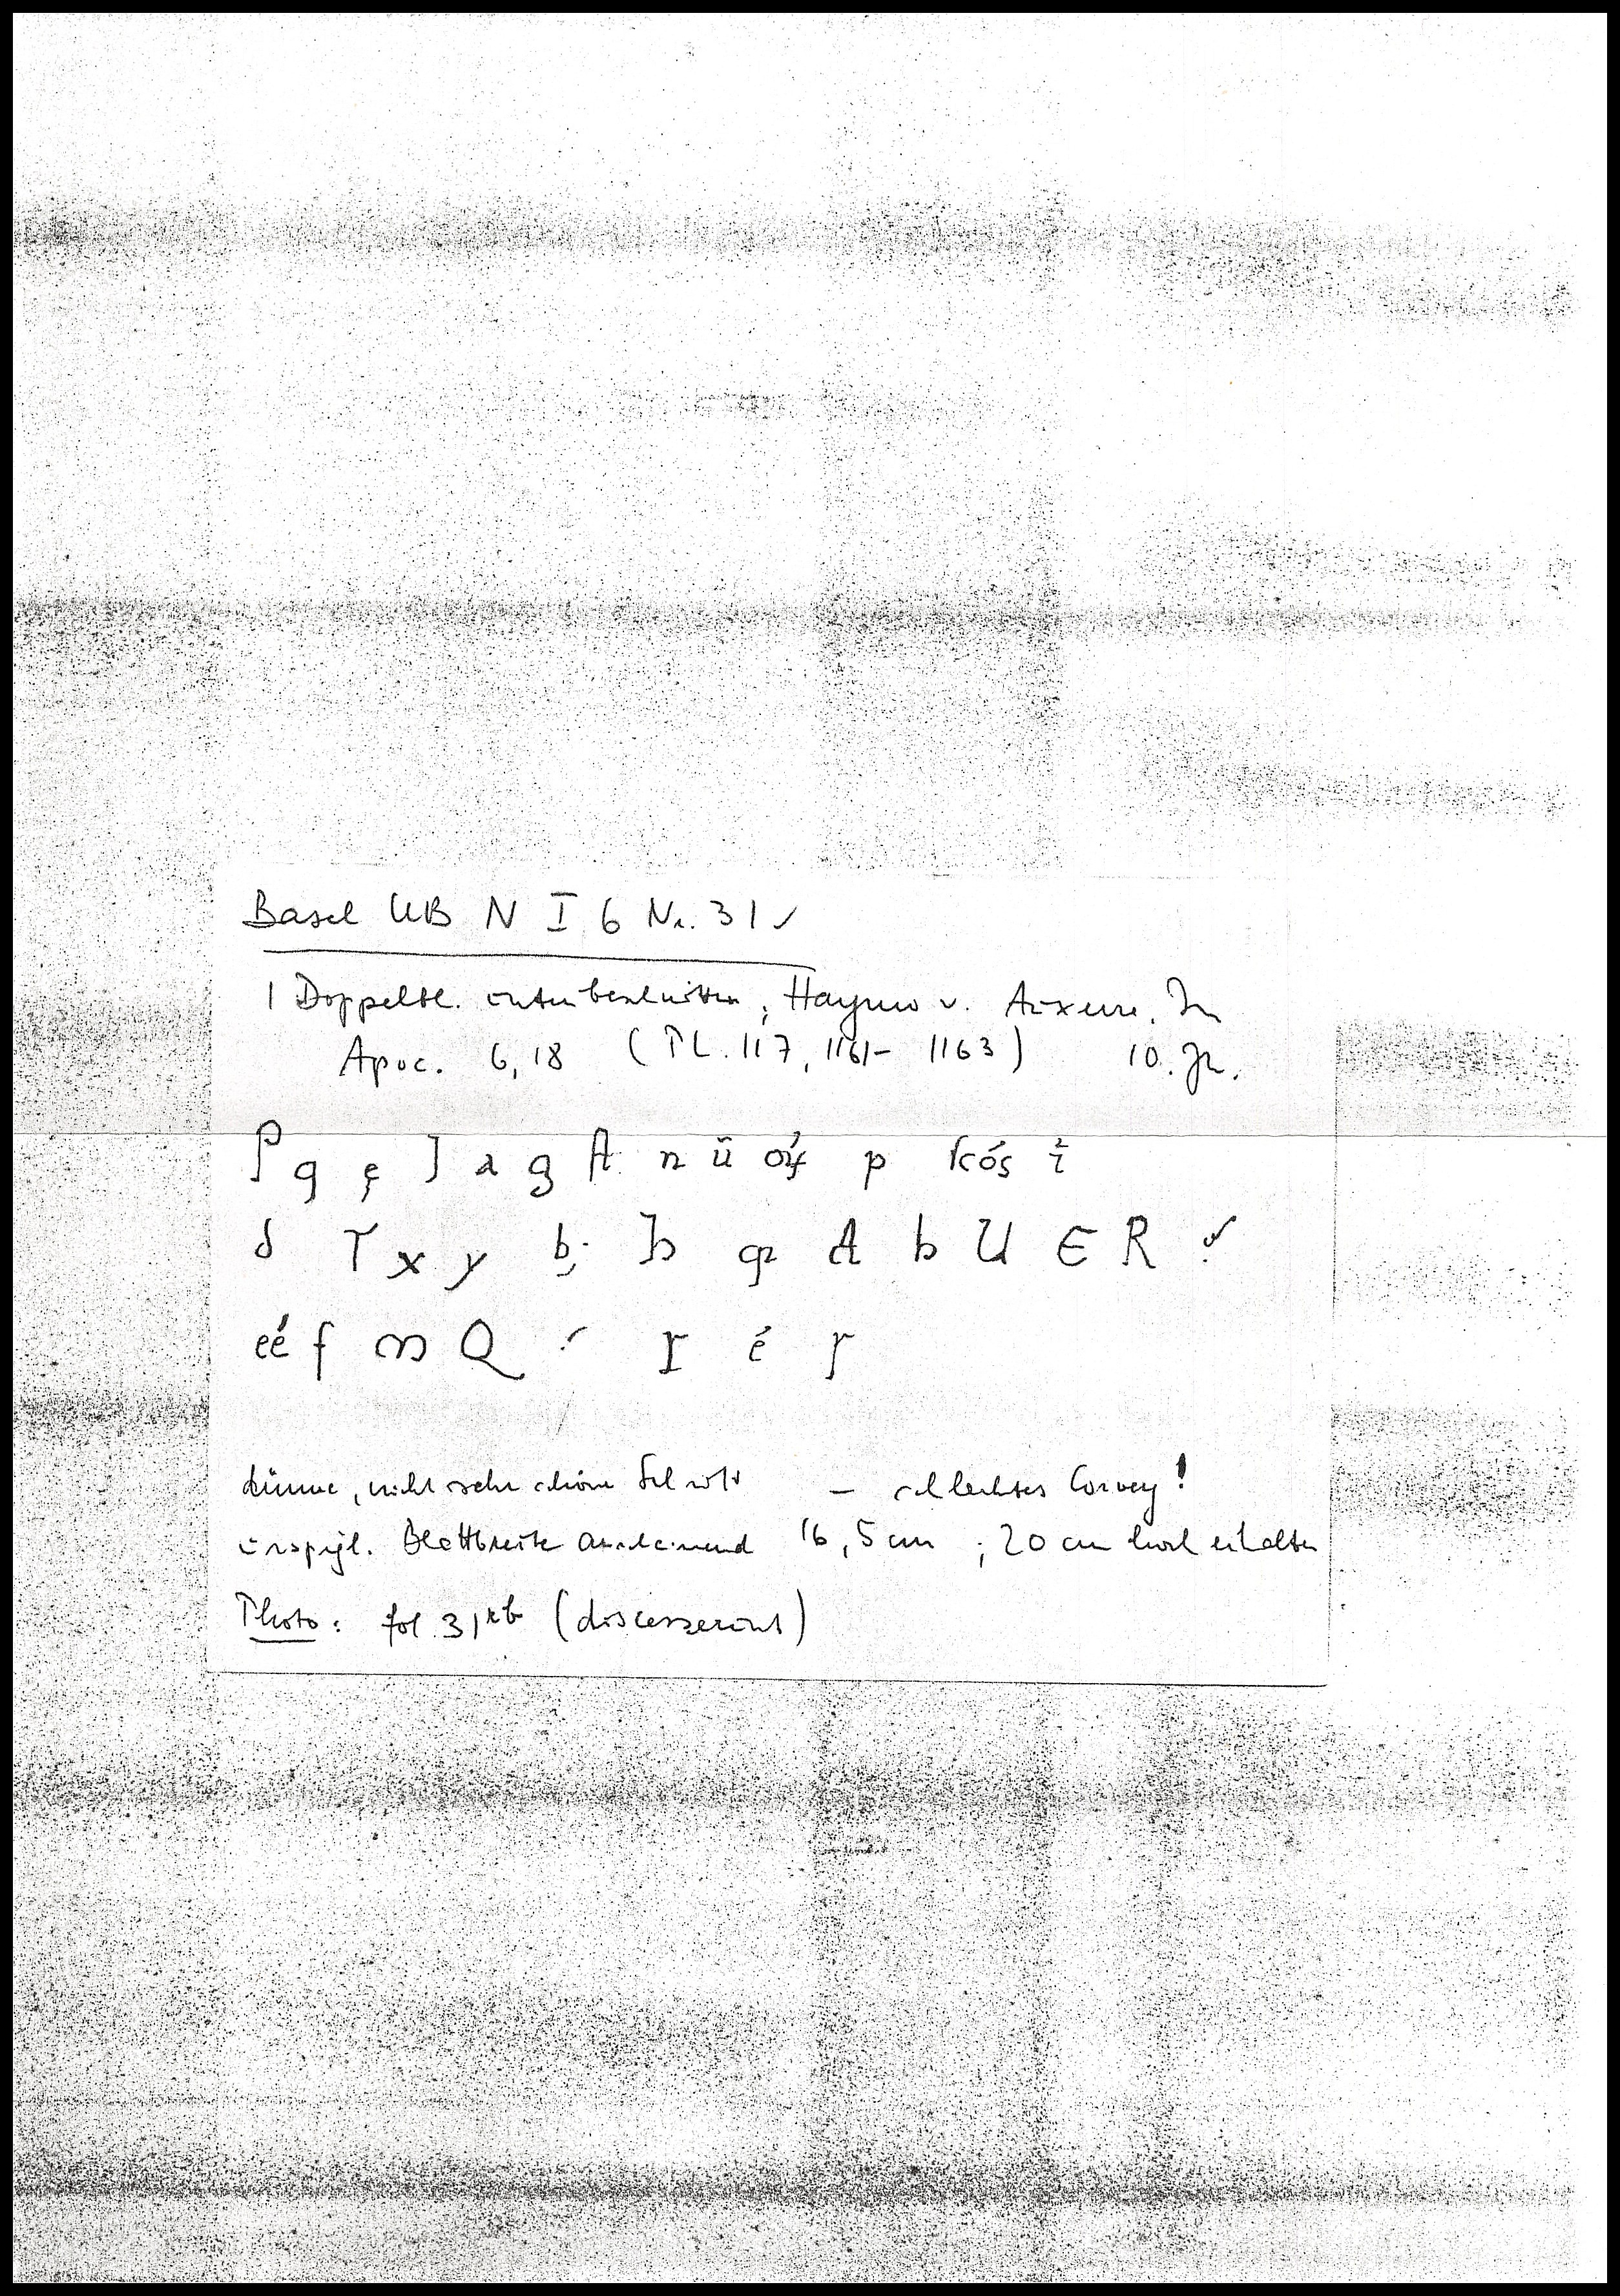 Basel UB N I 6 Nr. 31 ✓
1 Doppelbl. unten beschnitten, Haymo v. Auxerre. In
Apoc. 6,18 (PL. 117, 1161-1163) 10. Jh.
q ę J a g A n ű p kós
d T x y b; b A b U E R
eé f m Q r é r
dünne, nicht sehr schöne Schrift – schlechtes Corvey!
urspgl. Blattbreite anscheinend 16,5 cm ; 20 cm hoch erhalten
Photo: fol. 31rb (discesserunt)